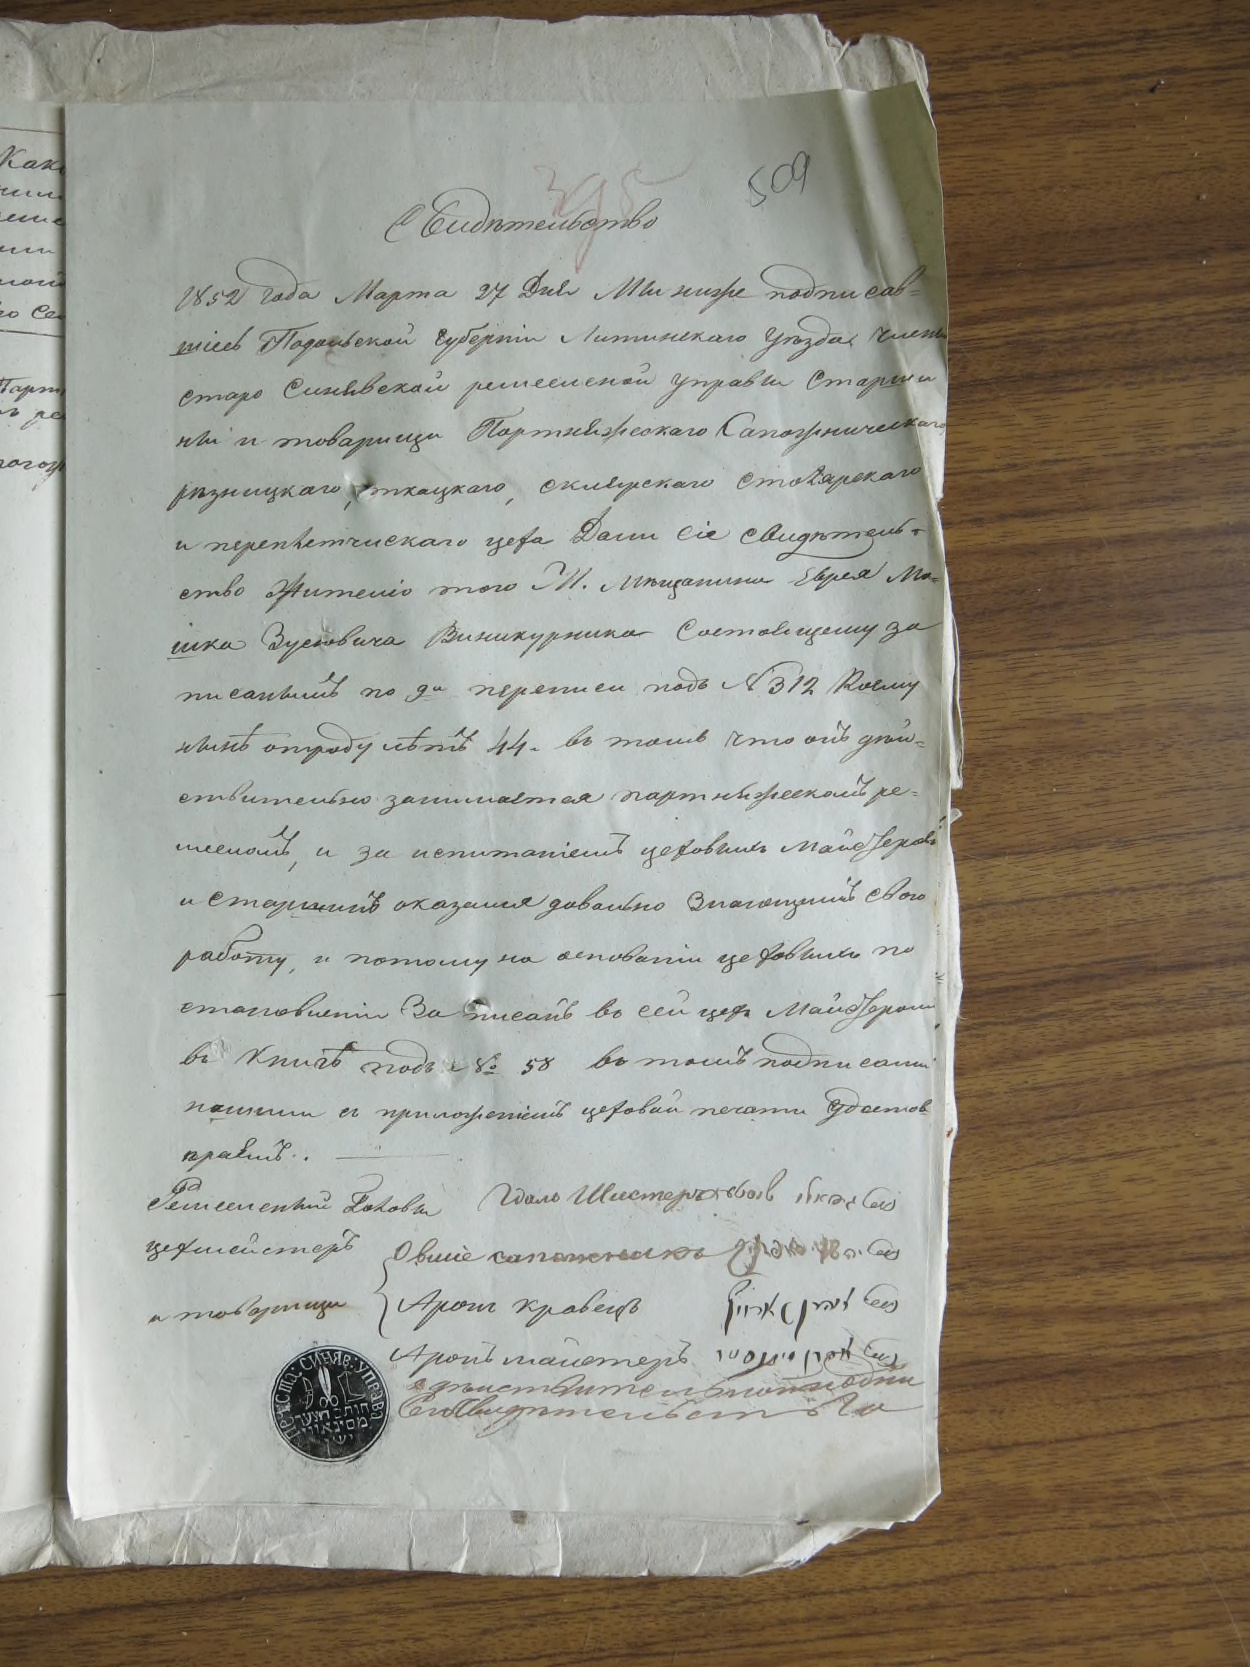 509
395
Свидѣтельство
1852 года Марта 27 Дня Мы ниже подписав=
шiесь Подольской губернiи Литинского уѣзда, члены
старо Синявской ремесленой управы Старши
ны и товарищи Портняжеского Сапожническаго
рѣзницкаго, ткацкаго, склярскаго столярскаго
и переплетческаго цеха Дали сiе свидѣтель-
ство Жителю того М. мѣщанину Еврею Мо=
шка Зусьовича Виникурника Состоящему за
писаннымъ по 9й переписи подъ № 312 Коему
нынѣ отроду лѣтъ 44. въ томъ что онъ дѣй=
ствительно занимается портняжескомъ ре=
месломъ, и за испытанiемъ цеховыхъ майстеровъ
и старшинъ оказался довольно Знающимъ свою
работу, и потому на основанiи цеховыхъ по
становленiи Записанъ въ сей цехъ Майстеромъ
въ Книгѣ подъ № 58 въ томъ подписами
нашими съ приложенiемъ цеховой печати удостов
ѣраемъ..
Ремесленный Голова
цехмейстеръ Овшiе сапожникъ
и товарищи Арон кравецъ
Аронъ майстеръ
Свидетельства
СИНЯВ: УПРАВА